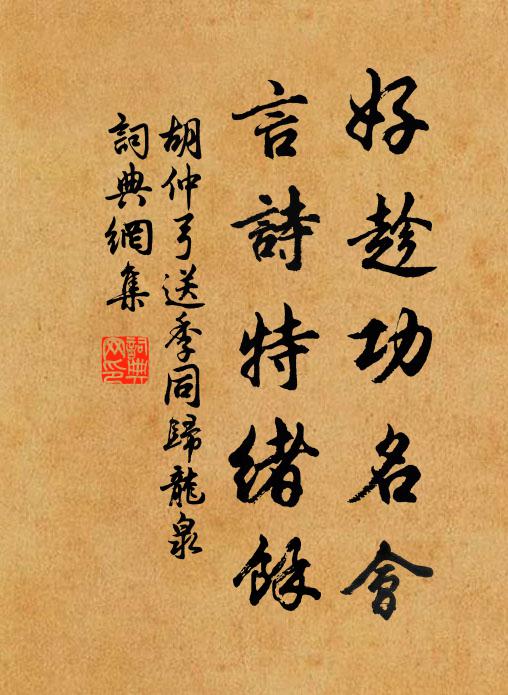 好趁功名會
言詩特緒餘
胡仲弓送季同歸龍泉
詞典網集
詞典網印